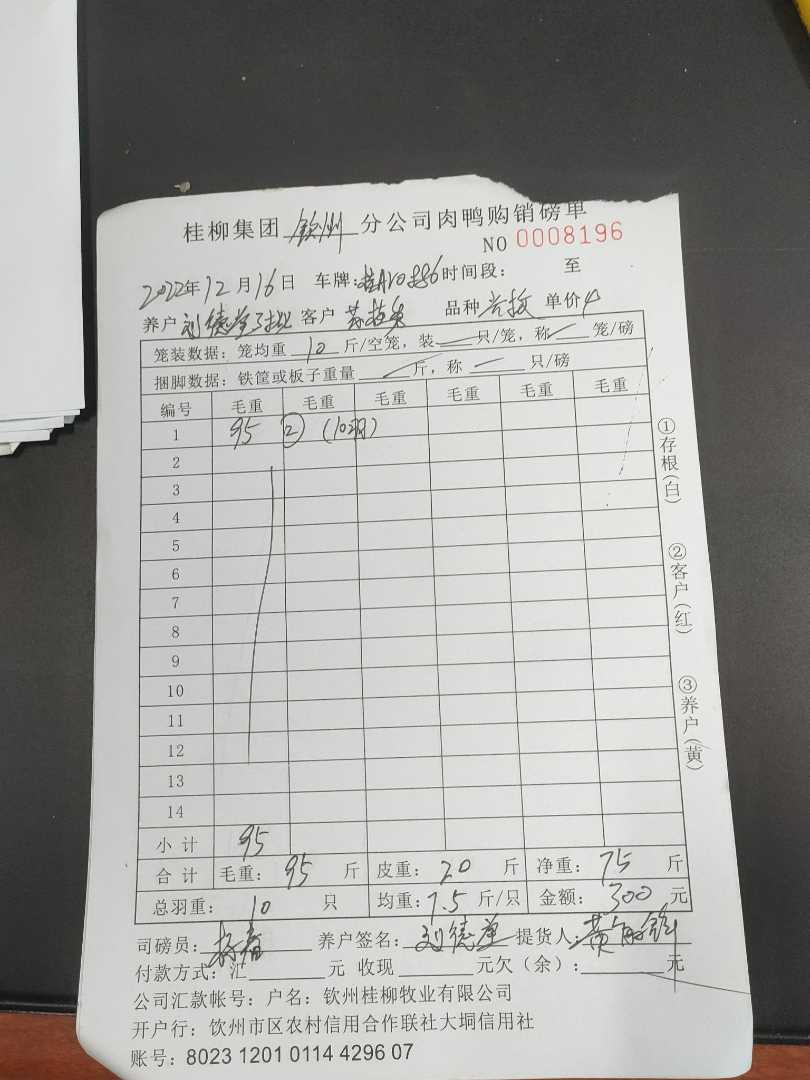 桂柳集团 钦州 分公司肉鸭购销磅单
NO 0008196
2022年12月16日 车牌: 时间段： 至
养户 刘德 客户 品种 单价 4
笼装数据：笼均重 10 斤/空笼，装 只/笼，称 笼/磅
捆脚数据：铁筐或板子重量 斤，称 只/磅
编号 毛重 毛重 毛重 毛重 毛重 毛重
1 95 ② (10羽)
2
3
4
5
6
7
8
9
10
11
12
13
14
小计 95
合计 毛重：95 斤 皮重：20 斤 净重：75 斤
总羽重： 10 只 均重：7.5 斤/只 金额： 300 元
司磅员： 养户签名：刘德 提货人：黄
付款方式：汇 元 收现 元欠（余）： 元
公司汇款帐号：户名：钦州桂柳牧业有限公司
开户行：饮州市区农村信用合作联社大垌信用社
账号：8023 1201 0114 4296 07
①存根（白）
②客户（红）
③养户（黄）